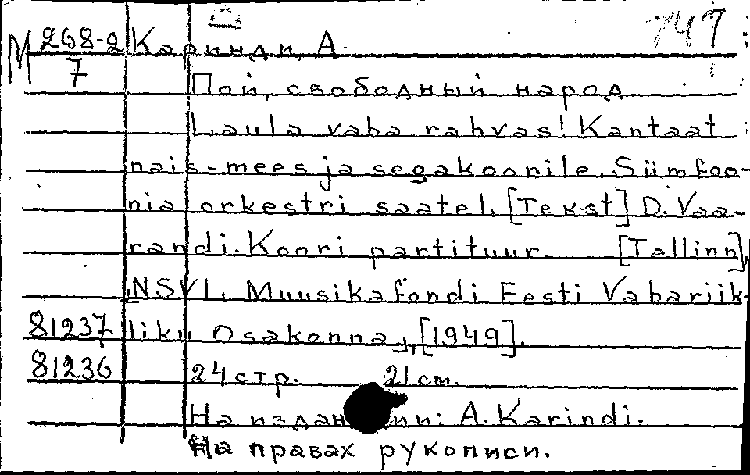 749
М 268-2 Каринди, А
7
Пой, свободный народ
Laula vaba rahvas! Kantaat
nais-mees ja segakoorile. Sümfoo-
nia orkestri saatel. [Tekst] D. Vaa-
randi. Koori partituur. [Tallinn],
"NSVL Muusikafondi Eesti Vabariik-
81237 liku Osakonna", [1949].
81236 24 стр. 21 cm.
На издании: A. Karindi.
На правах рукописи.